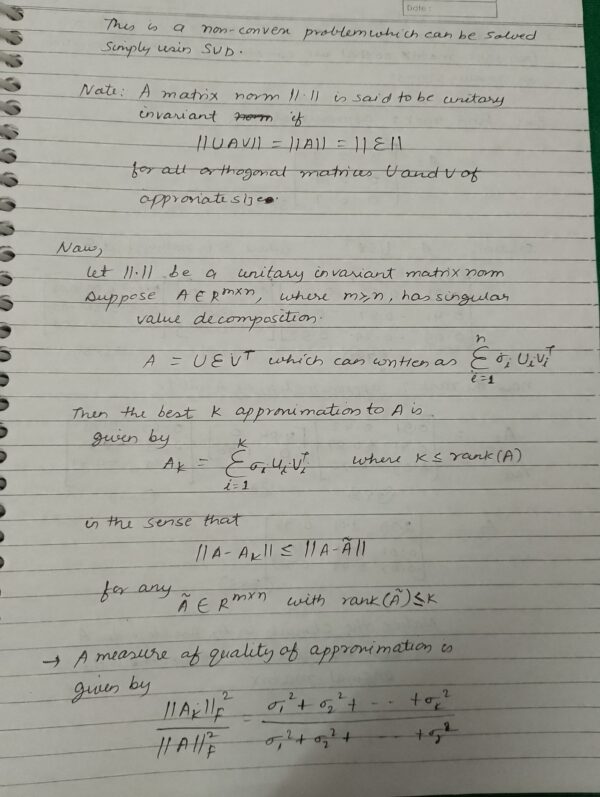 Date:
This is a non-convex problem which can be solved
simply usin SVD.
Note: A matrix norm ||·|| is said to be unitary
invariant if
||UAV|| = ||A|| = ||Σ||
for all orthogonal matrices U and V of
approriate size.
Now,
let ||·|| be a unitary invariant matrix norm
Suppose A ∈ R^{m×n}, where m≥n, has singular
value decomposition.
A = UΣV^T which can written as Σ_{i=1}^{n} σ_i U_i V_i^T
Then the best K approximation to A is
given by
A_k = Σ_{i=1}^{K} σ_i U_i V_i^T where K ≤ rank(A)
in the sense that
||A - A_k|| ≤ ||A - Ã||
for any Ã ∈ R^{m×n} with rank(Ã) ≤ K
→ A measure of quality of approximation is
given by
||A_k||_F^2 / ||A||_F^2 = σ_1^2 + σ_2^2 + -- · + σ_k^2 / σ_1^2 + σ_2^2 + · · · · + σ_r^2